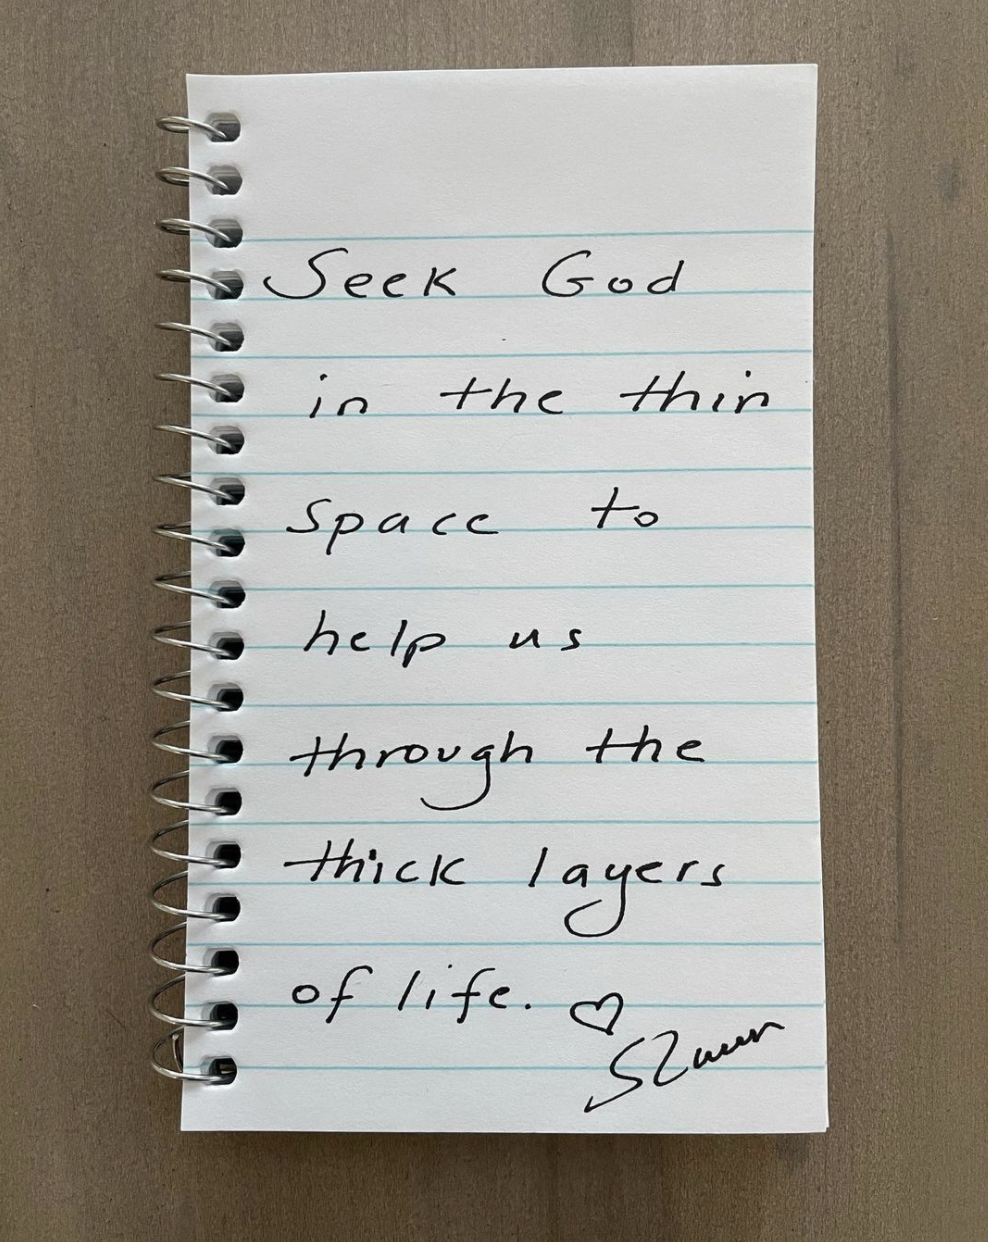 Seek God
in the thin
space to
help us
through the
thick layers
of life. ♡